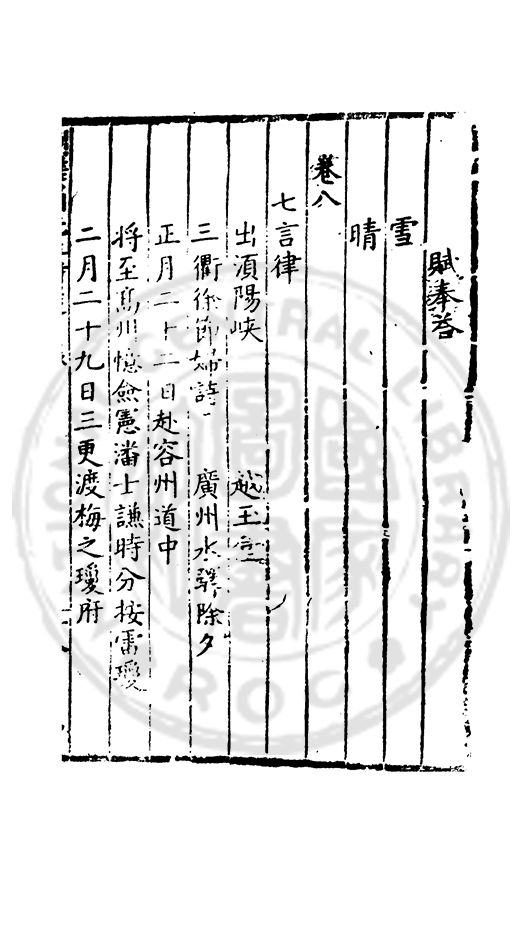 賦奉答
雪
晴
卷八
七言律
出湞陽峽 越王臺
三衢徐節婦詩 廣州水驛除夕
正月二十二日赴容州道中
將至高州憶僉憲潘士謙時分按雷瓊
二月二十九日三更渡梅之瓊府